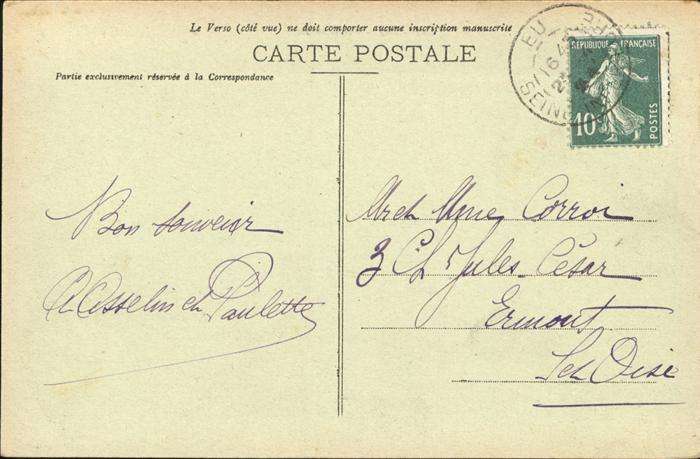 Le Verso (côté vue) ne doit comporter aucune inscription manuscrite
CARTE POSTALE
Partie exclusivement réservée à la Correspondance
EU
16 45
SEINE
REPUBLIQUE FRANÇAISE
10c
POSTES
Bon souvenir
A Asselin et Paulette
M et Mme Corroi
3 Ch Jules César
Ermont
S et Oise